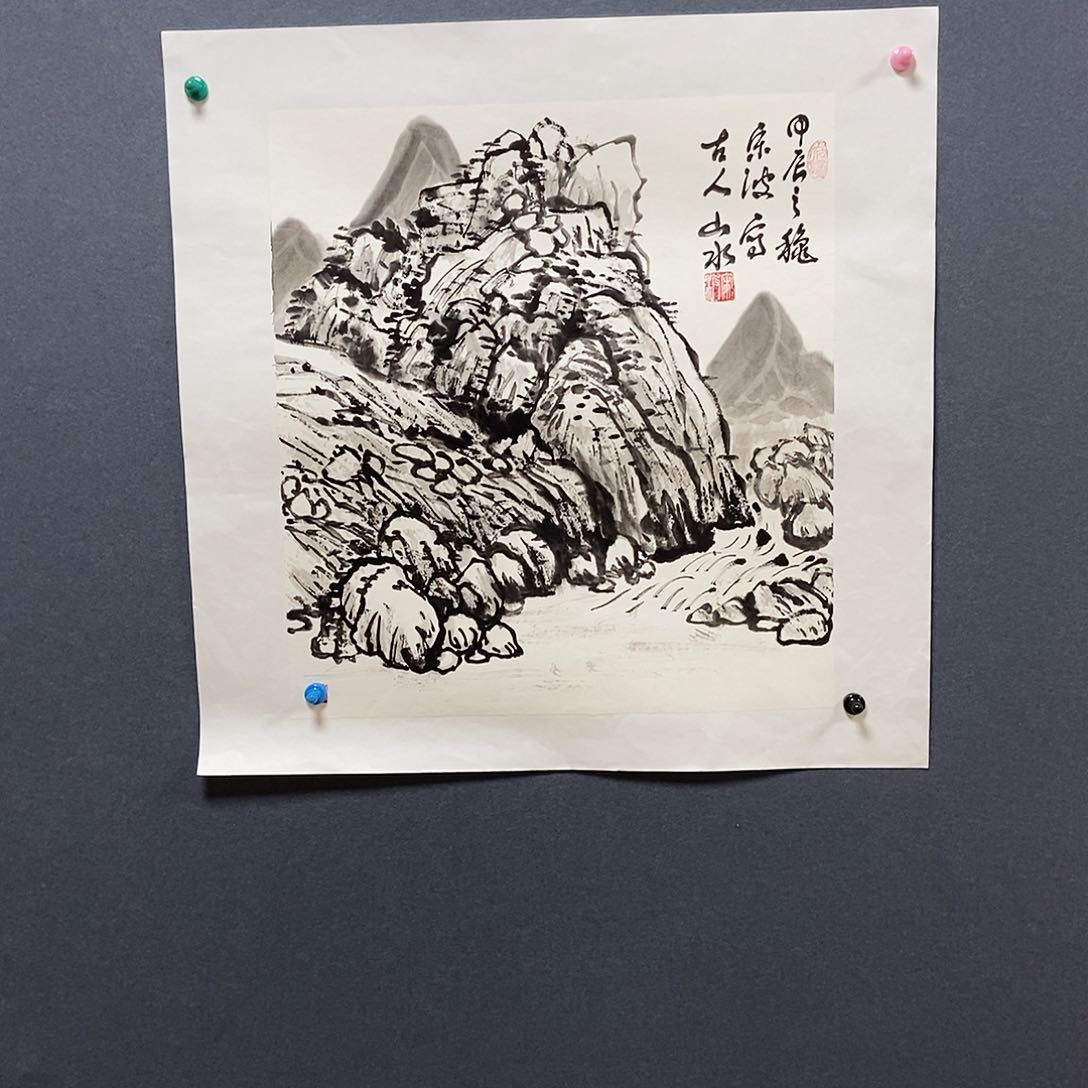 甲辰之穐
宋波写
古人山水